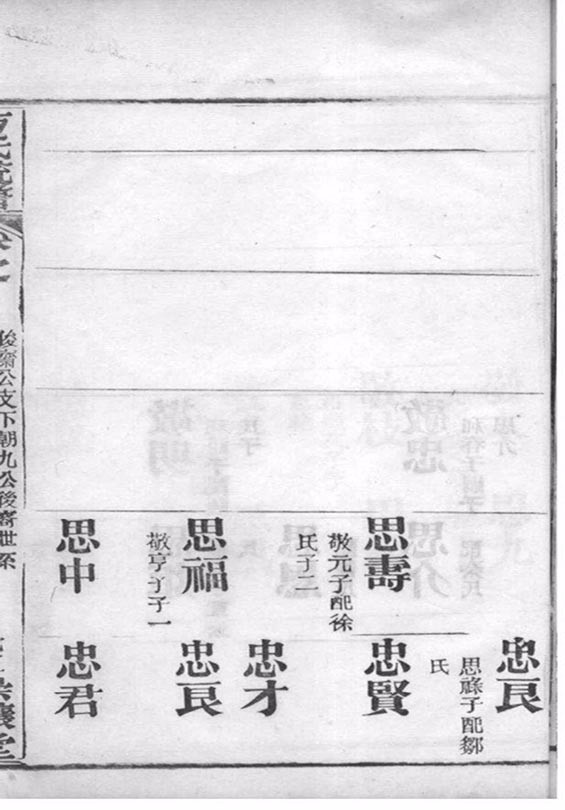 忠良
思祿子配鄒
氏
思壽
敬元子配徐
氏子二
忠賢
忠才
思福
敬亨子子一
忠良
思中
忠君
俊齋公支下朝九公後裔世系